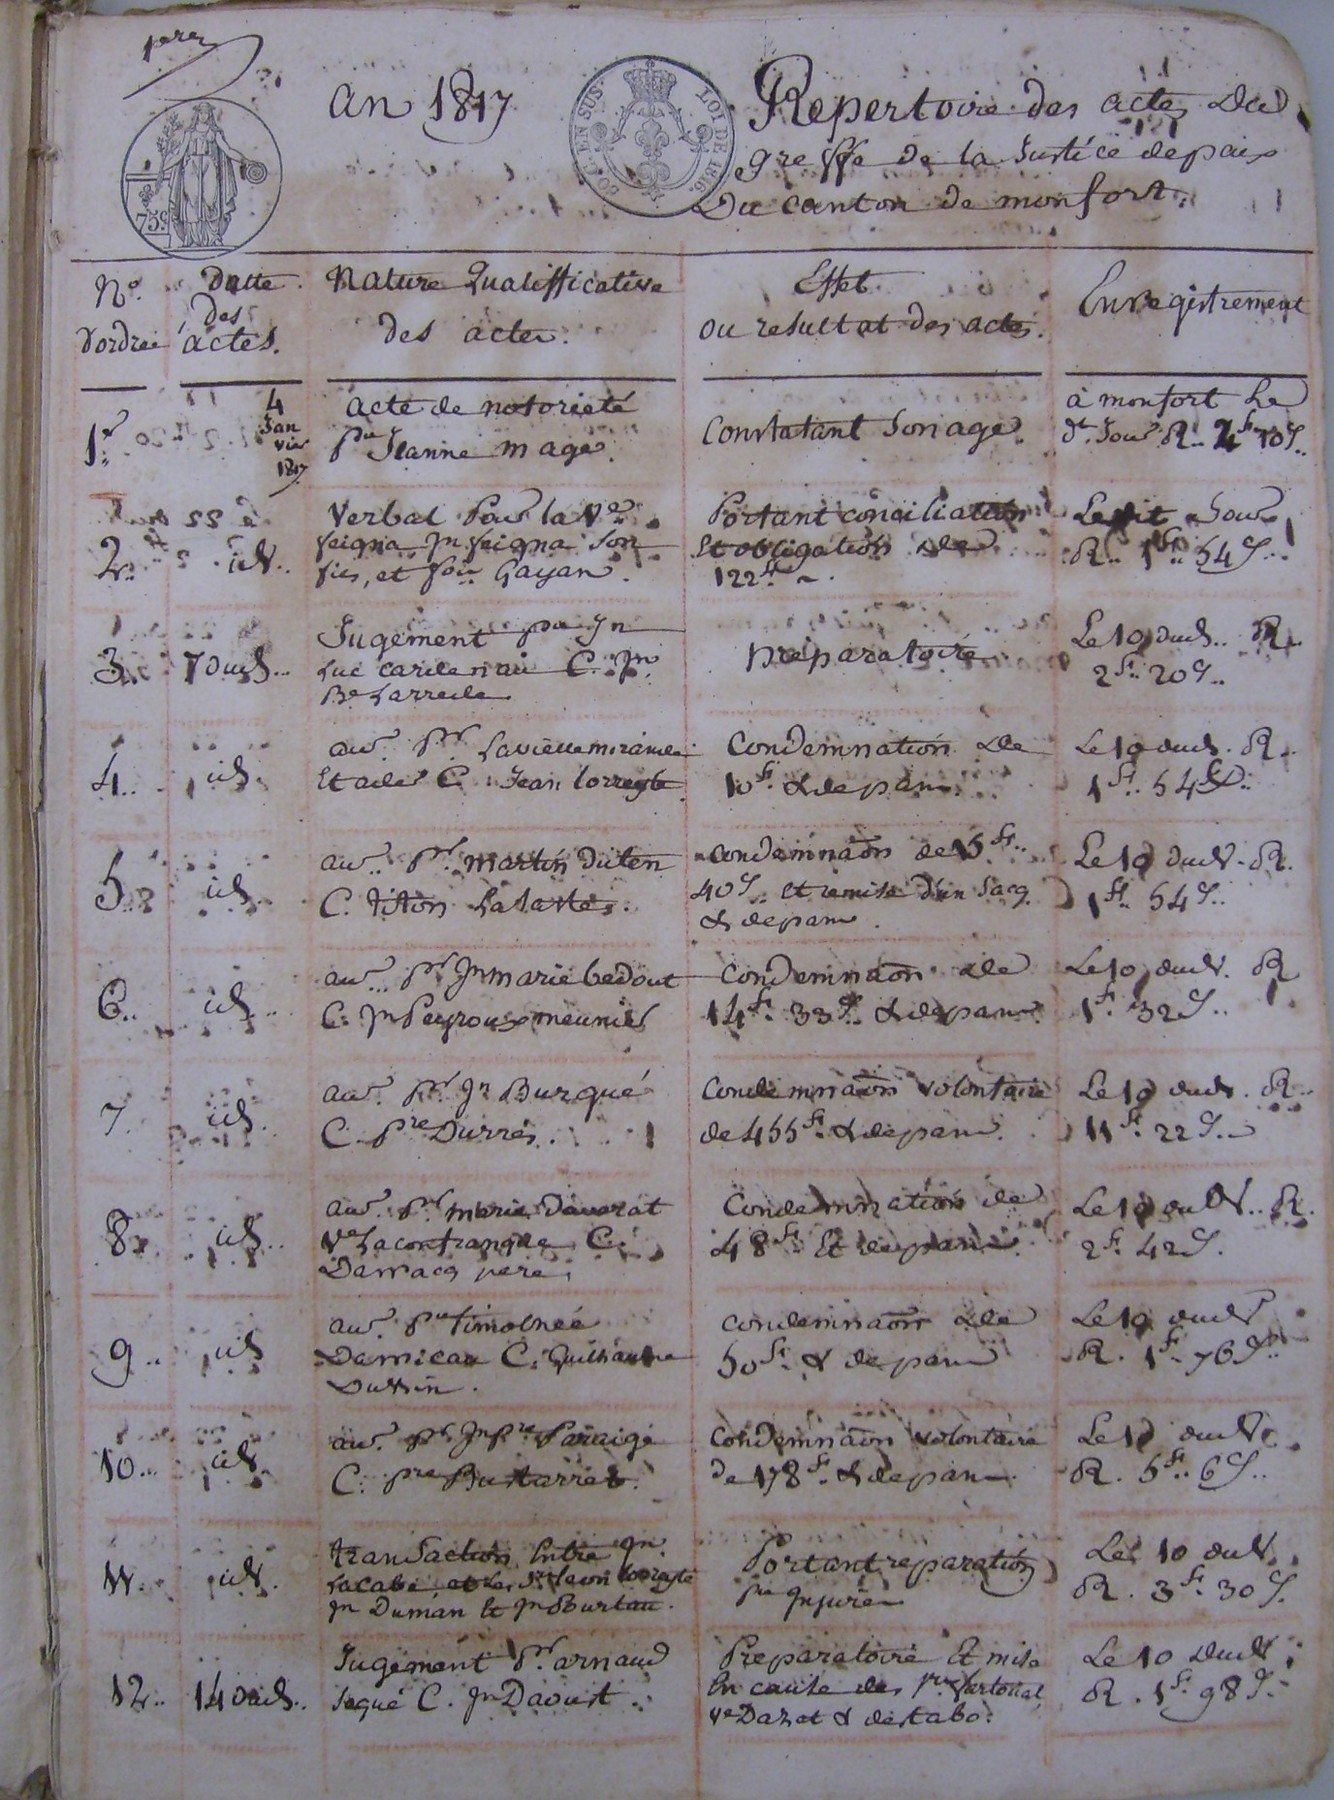 1ere
an 1817
75c
LOI DE 1816
Repertoire des actes du
greffe de la Justice depaix
Du canton de monfort.
No. d'ordre
Datte des actes.
Nature qualifficative des actes.
Effet ou resultat des actes.
Enregistrement
1er
4 Janvier 1817
acte de notorieté
pr Jeanne mage.
Constatant Son age.
à monfort Le
dt. Jour R.. 2f 70c..
2..
id..
Verbal pour la Ve
feigna, Jn feigna Son
fils, et Gayan.
Portant conciliation
Et obligation de
122f
Le dit Jour
R.. 1f.. 54c..
3..
7 dud..
Jugement pr Jn
Luc Cardenau C. Jn
Be Larrede
Preparatoire
Le 10 dud.. R..
2f.. 20c..
4..
id.
au. pr. Lavielle
Et C. Jean Lorreyte
Condemnation de
10f. & depans.
Le 10 dud. R..
1f.. 54c..
5..
id.
au.. pr. martin Duten
C. Titon Lalanne.
Condemnaon de 15f..
40c.. et remise d'un Sacq
& depans.
Le 10 dud. R.
1f.. 54c..
6..
id..
au... pr. Jn marie bedout
C. Jn Peyroux meunier
Condemnaon de
14f. 33c. & depans.
Le 10 dud. R
1f. 32c..
7.
id.
au. pr. Jn Burgué
C. pre Durrés.
Condemnaon volontaire
de 455f. & depans.
Le 10 dud. R..
11f. 22c..
8..
id..
au. pr. marie Daverat
Ve Lacontranque C.
Darracq pere.
Condemnation de
48f. Et depans.
Le 10 dud.. R.
2f. 42c.
9..
id
au. pr
Damicau C. Guilhaume
Dussin.
Condemnaon de
50f. & depans
Le 10 dud
R. 1f. 76c..
10...
id.
au. pr. Jn pre
C. pre Bustarret.
Condemnaon volontaire
de 178f. & depans.
Le 10 dud.
R. 5f.. 6c..
11..
id.
transaction Entre Jn
Lacabe et Les
Jn Duman Et Jn Bourtau.
Portant reparation
pr Injures
Le 10 dud.
R. 3f. 30c.
12..
14 dud..
Jugement pr. arnaud
Segué C. Jn Daoust.
Preparatoire Et mise
En cause des
Ve Dazet & destabo.
Le 10 dud
R. 1f. 98c.